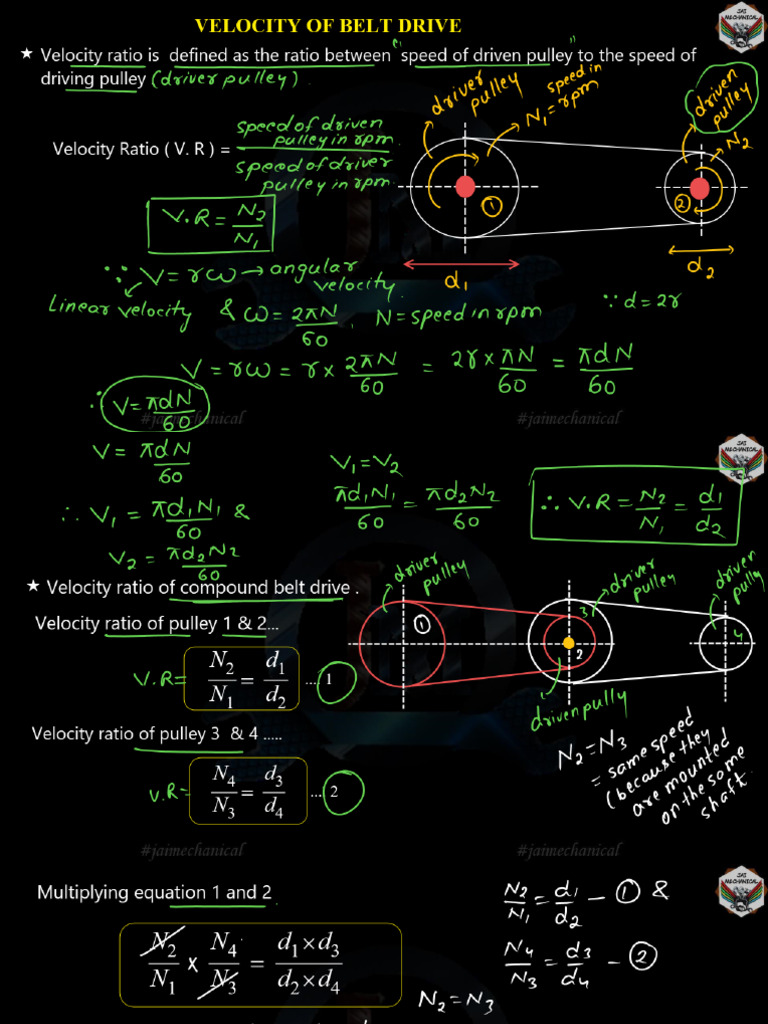 VELOCITY OF BELT DRIVE
JAI
MECHANICAL
★ Velocity ratio is defined as the ratio between "speed of driven pulley" to the speed of
driving pulley (driver pulley).
driver
pulley
speed in
N₁ = rpm
driven
pulley
N₂
Velocity Ratio ( V. R ) = speed of driven pulley in rpm / speed of driver pulley in rpm.
①
②
V.R = N₂/N₁
d₁
d₂
∵ V = rω → angular
velocity.
Linear velocity & ω = 2πN/60, N = speed in rpm
∵ d = 2r
V = rω = r × 2πN/60 = 2r × πN/60 = πdN/60
∴ V = πdN/60
#jaimechanical
#jaimechanical
JAI
MECHANICAL
V = πdN/60
V₁ = V₂
∴ V₁ = πd₁N₁/60 &
πd₁N₁/60 = πd₂N₂/60
∴ V.R = N₂/N₁ = d₁/d₂
V₂ = πd₂N₂/60
★ Velocity ratio of compound belt drive .
driver
pulley
driver
pulley
driven
pully
①
3
2
4
driven pully
Velocity ratio of pulley 1 & 2...
V.R = N₂/N₁ = d₁/d₂ ....1
Velocity ratio of pulley 3 & 4 .....
V.R = N₄/N₃ = d₃/d₄ ....2
N₂ = N₃
= same speed
(because they
are mounted
on the same
shaft.
#jaimechanical
#jaimechanical
JAI
MECHANICAL
Multiplying equation 1 and 2
N₂/N₁ = d₁/d₂ – ① &
N₂/N₁ x N₄/N₃ = d₁×d₃/d₂×d₄
N₄/N₃ = d₃/d₄ – ②
N₂ = N₃